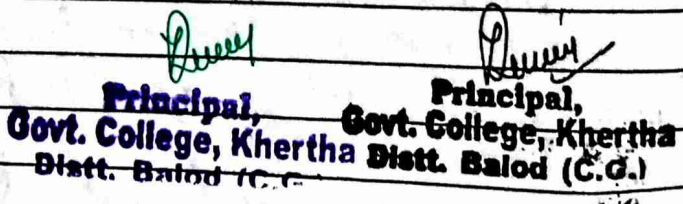 Principal,
Govt. College, Khertha
Distt. Balod (C.G.
Principal,
Govt. College, Khertha
Distt. Balod (C.G.)